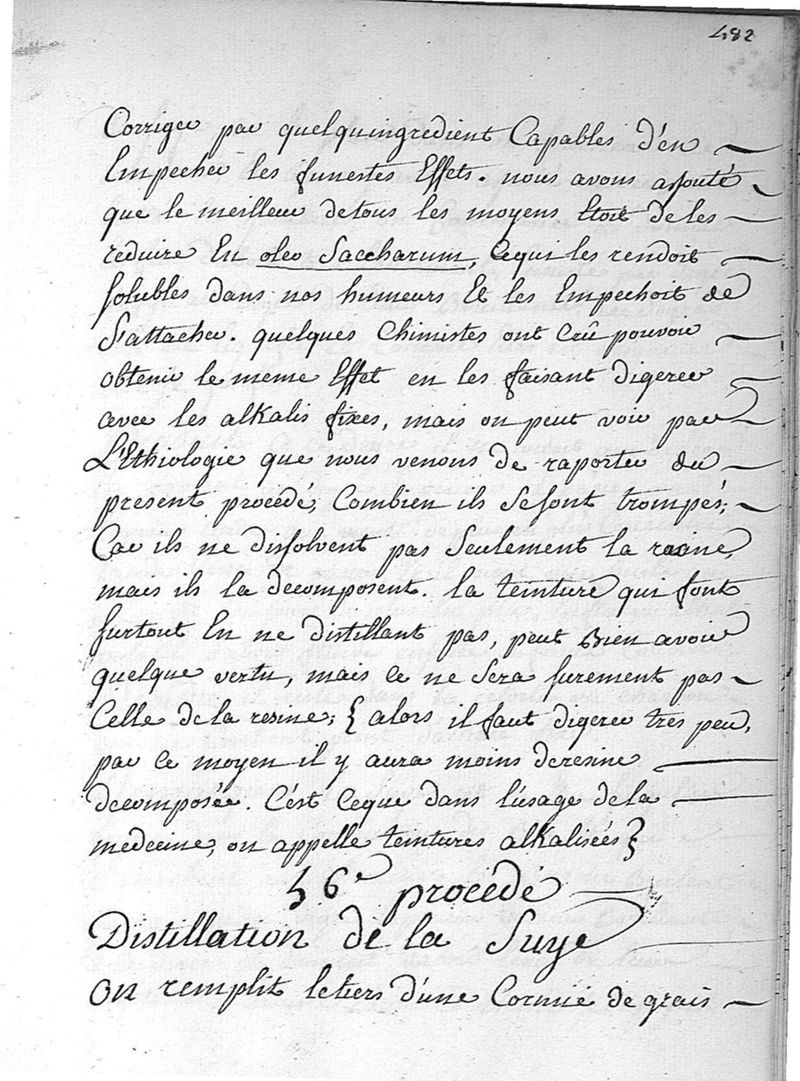 482
Corriger par quelqu'ingredient Capables d'en
Empecher les funestes Effets. nous avons ajouté
que le meilleur de tous les moyens Etoit de les
reduire En oleo Saccharum, Cequi les rendoit
solubles dans nos humeurs Et les Empechoit de
S'attacher. quelques Chimistes ont Crû pouvoir
obtenir le meme Effet en les faisant digerer
avec les alkalis fixes, mais on peut voir par
L'Ethiologie que nous venons de raporter du
present procedé, Combien ils Se sont trompés;
Car ils ne dissolvent pas Seulement la rasine,
mais ils la decomposent. la teinture qui font
surtout En ne distillant pas, peut Bien avoir
quelque vertu, mais Ce ne Sera surement pas
Celle de la resine; { alors il faut digerer tres peu,
par Ce moyen il y aura moins de resine
decomposée. C'est Ceque dans l'usage de la
medecine, on appelle teintures alkalisées }
46e procédé
Distillation de la Suye
On remplit le tiers d'une Cornue de grais